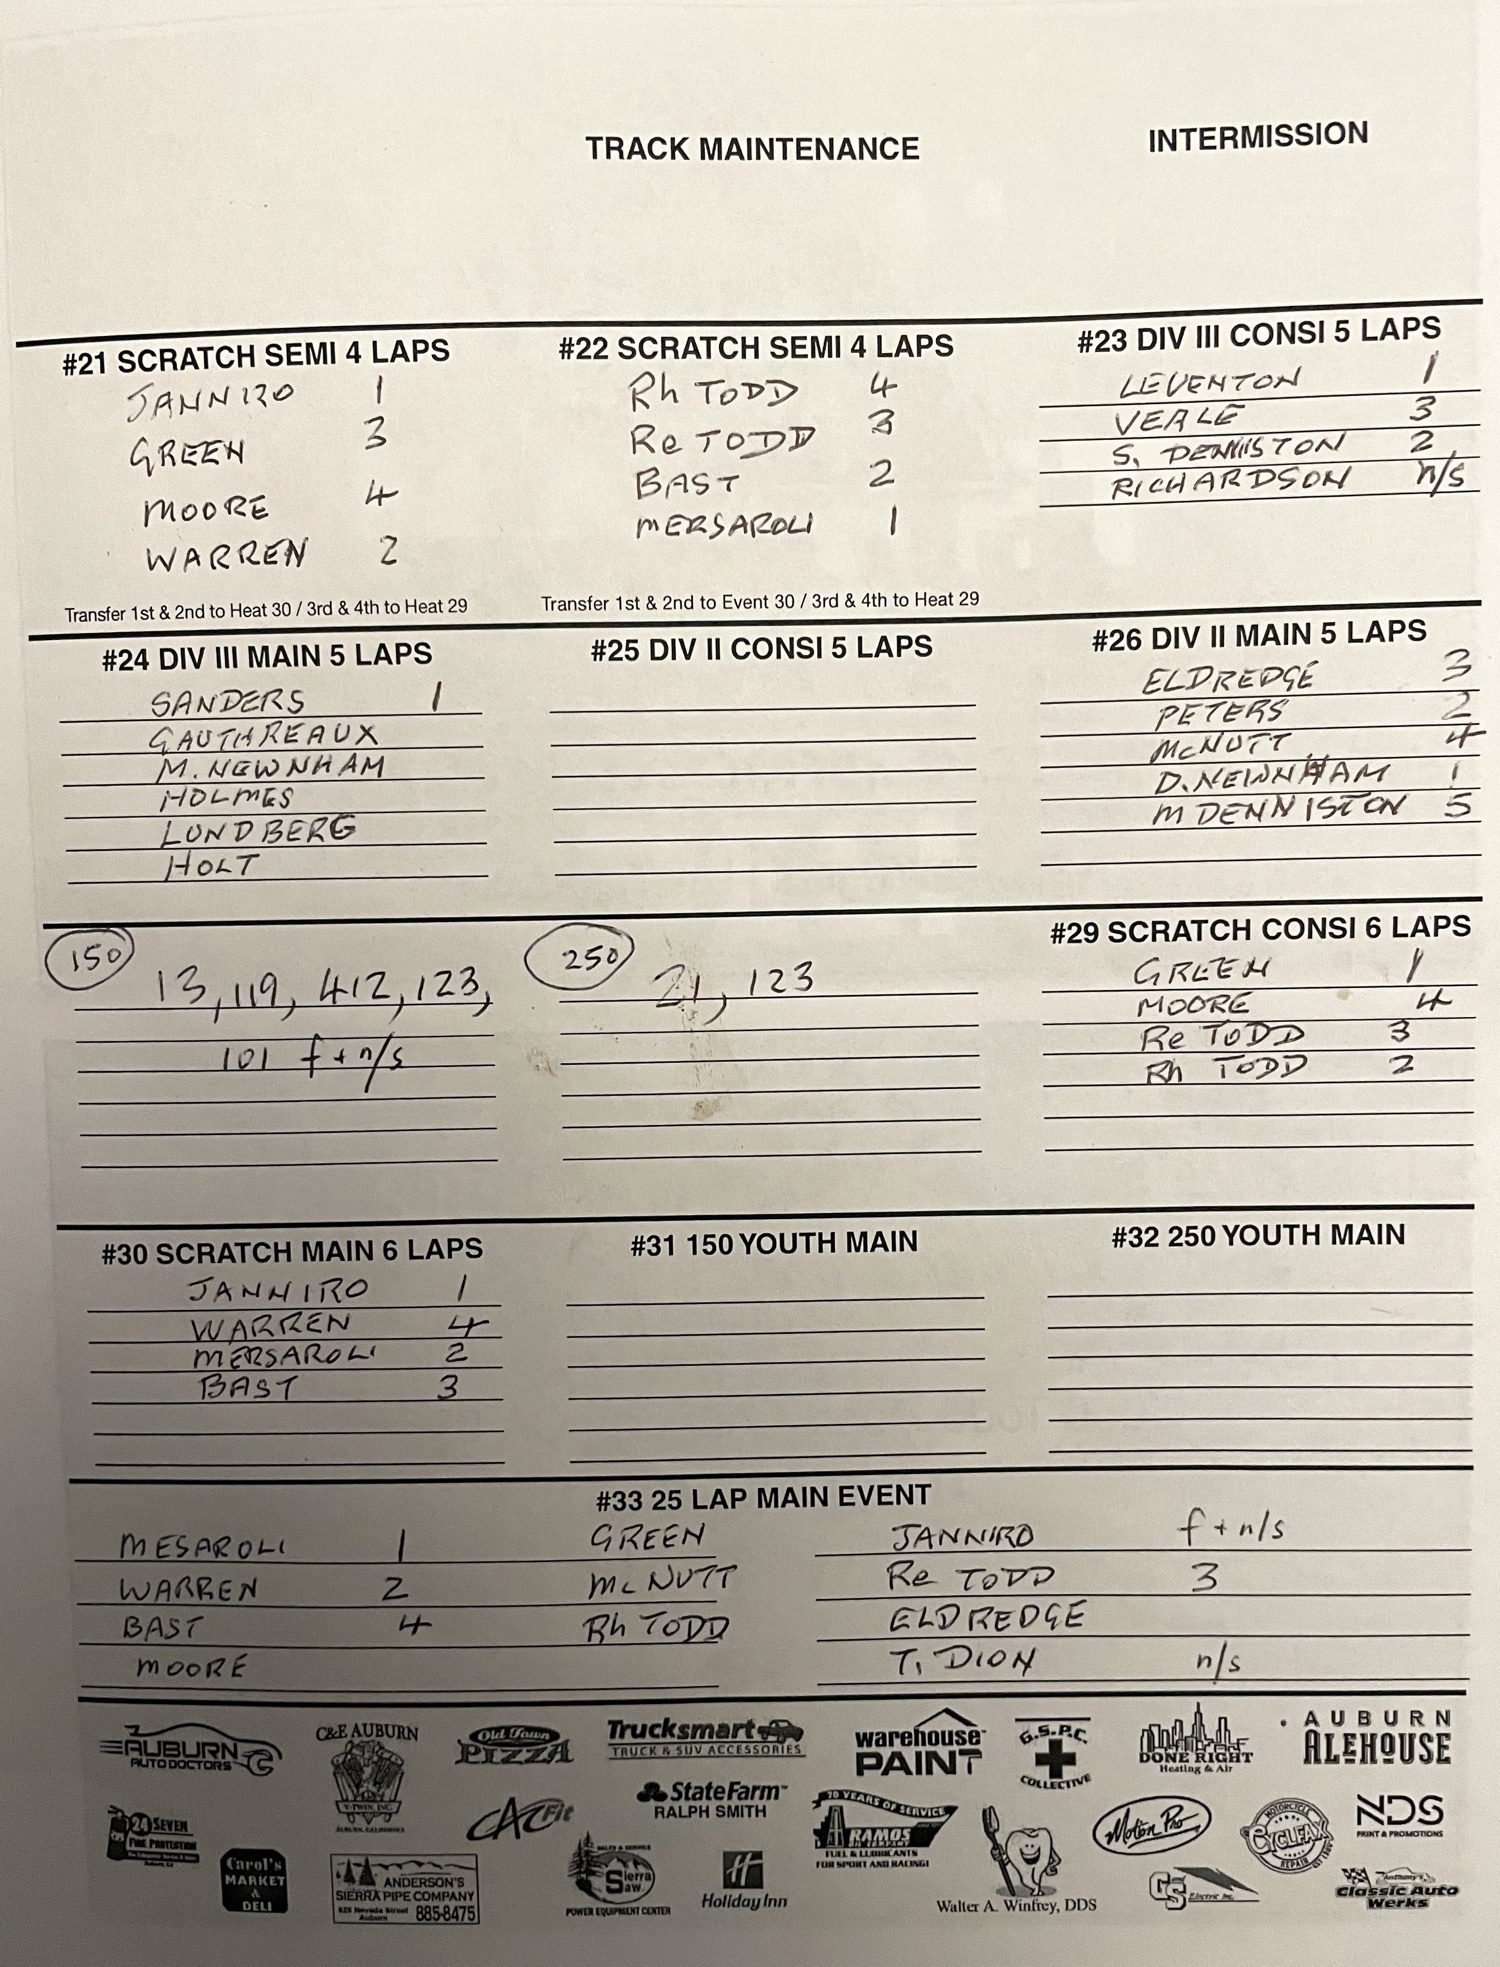 TRACK MAINTENANCE
INTERMISSION
#21 SCRATCH SEMI 4 LAPS
JANNIRO 1
GREEN 3
MOORE 4
WARREN 2
Transfer 1st & 2nd to Heat 30 / 3rd & 4th to Heat 29
#22 SCRATCH SEMI 4 LAPS
Rh TODD 4
Re TODD 3
BAST 2
MERSAROLI 1
Transfer 1st & 2nd to Event 30 / 3rd & 4th to Heat 29
#23 DIV III CONSI 5 LAPS
LEVENTON 1
VEALE 3
S. DENNISTON 2
RICHARDSON n/s
#24 DIV III MAIN 5 LAPS
SANDERS 1
GAUTHREAUX
M. NEWNHAM
HOLMES
LUNDBERG
HOLT
#25 DIV II CONSI 5 LAPS
#26 DIV II MAIN 5 LAPS
ELDREDGE 3
PETERS 2
McNUTT 4
D. NEWNHAM 1
M DENNISTON 5
150
13, 119, 412, 123,
101 f + n/s
250
21, 123
#29 SCRATCH CONSI 6 LAPS
GREEN 1
MOORE 4
Re TODD 3
Rh TODD 2
#30 SCRATCH MAIN 6 LAPS
JANNIRO 1
WARREN 4
MERSAROLI 2
BAST 3
#31 150 YOUTH MAIN
#32 250 YOUTH MAIN
#33 25 LAP MAIN EVENT
MESAROLI 1 GREEN JANNIRO f + n/s
WARREN 2 McNUTT Re TODD 3
BAST 4 Rh TODD ELDREDGE
MOORE T. DION n/s
AUBURN
AUTO DOCTORS
C&E AUBURN
V-TWIN, INC.
AUBURN, CALIFORNIA
Old Town
PIZZA
Trucksmart
TRUCK & SUV ACCESSORIES
warehouse
PAINT
G.S.P.C.
COLLECTIVE
DONE RIGHT
Heating & Air
AUBURN
ALEHOUSE
24 SEVEN
FIRE PROTECTION
CAC Fit
StateFarm™
RALPH SMITH
70 YEARS OF SERVICE
RAMOS
OIL COMPANY
FUEL & LUBRICANTS
FOR SPORT AND RACING!
Motion Pro
MOTORCYCLE
CYCLFAX
REPAIR
NDS
PRINT & PROMOTIONS
Carol's
MARKET
&
DELI
ANDERSON'S
SIERRA PIPE COMPANY
Nevada Street
Auburn
885-8475
SALES & SERVICE
Sierra
Saw
POWER EQUIPMENT CENTER
H
Holiday Inn
Walter A. Winfrey, DDS
GS
Electric Inc.
Anthony's
Classic Auto
Werks